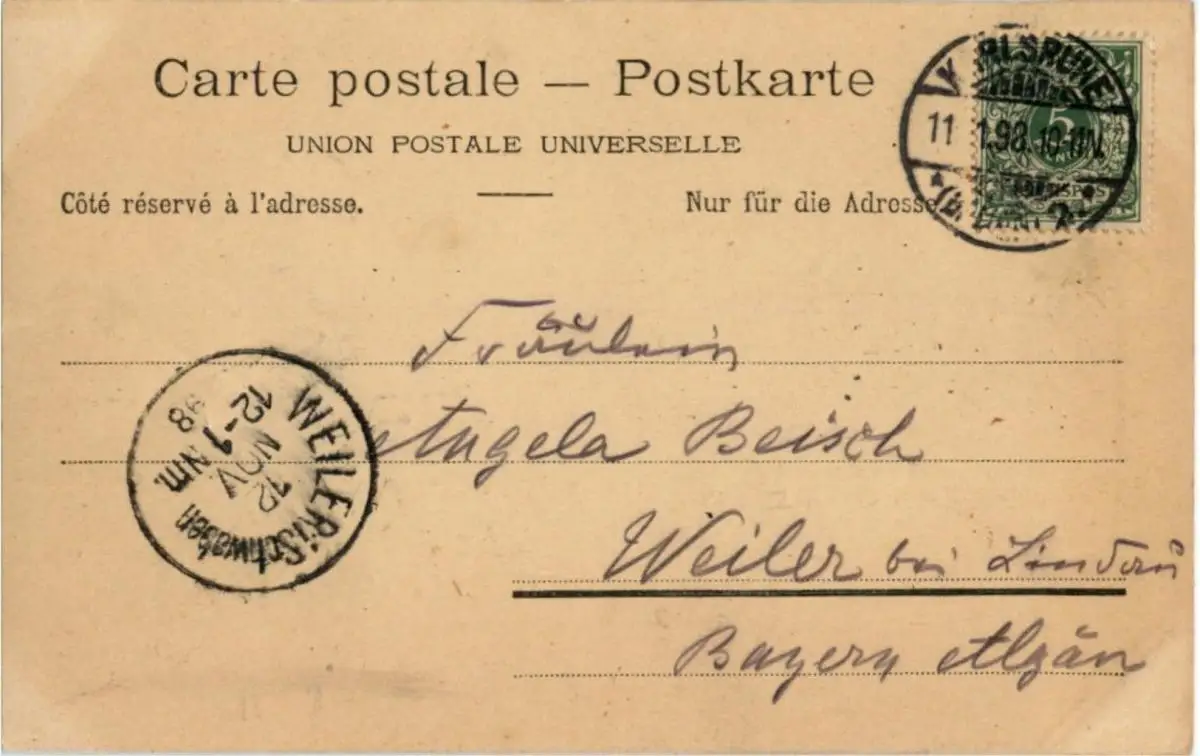 Carte postale — Postkarte
UNION POSTALE UNIVERSELLE
Côté réservé à l'adresse.
Nur für die Adresse
5
11 .98. 10-11N.
2.
Fräulein
Angela Beisch
Weiler bei Lindau
Bayern Algäu
WEILER i/Schwaben
12 NOV
12-1 Nm.
98